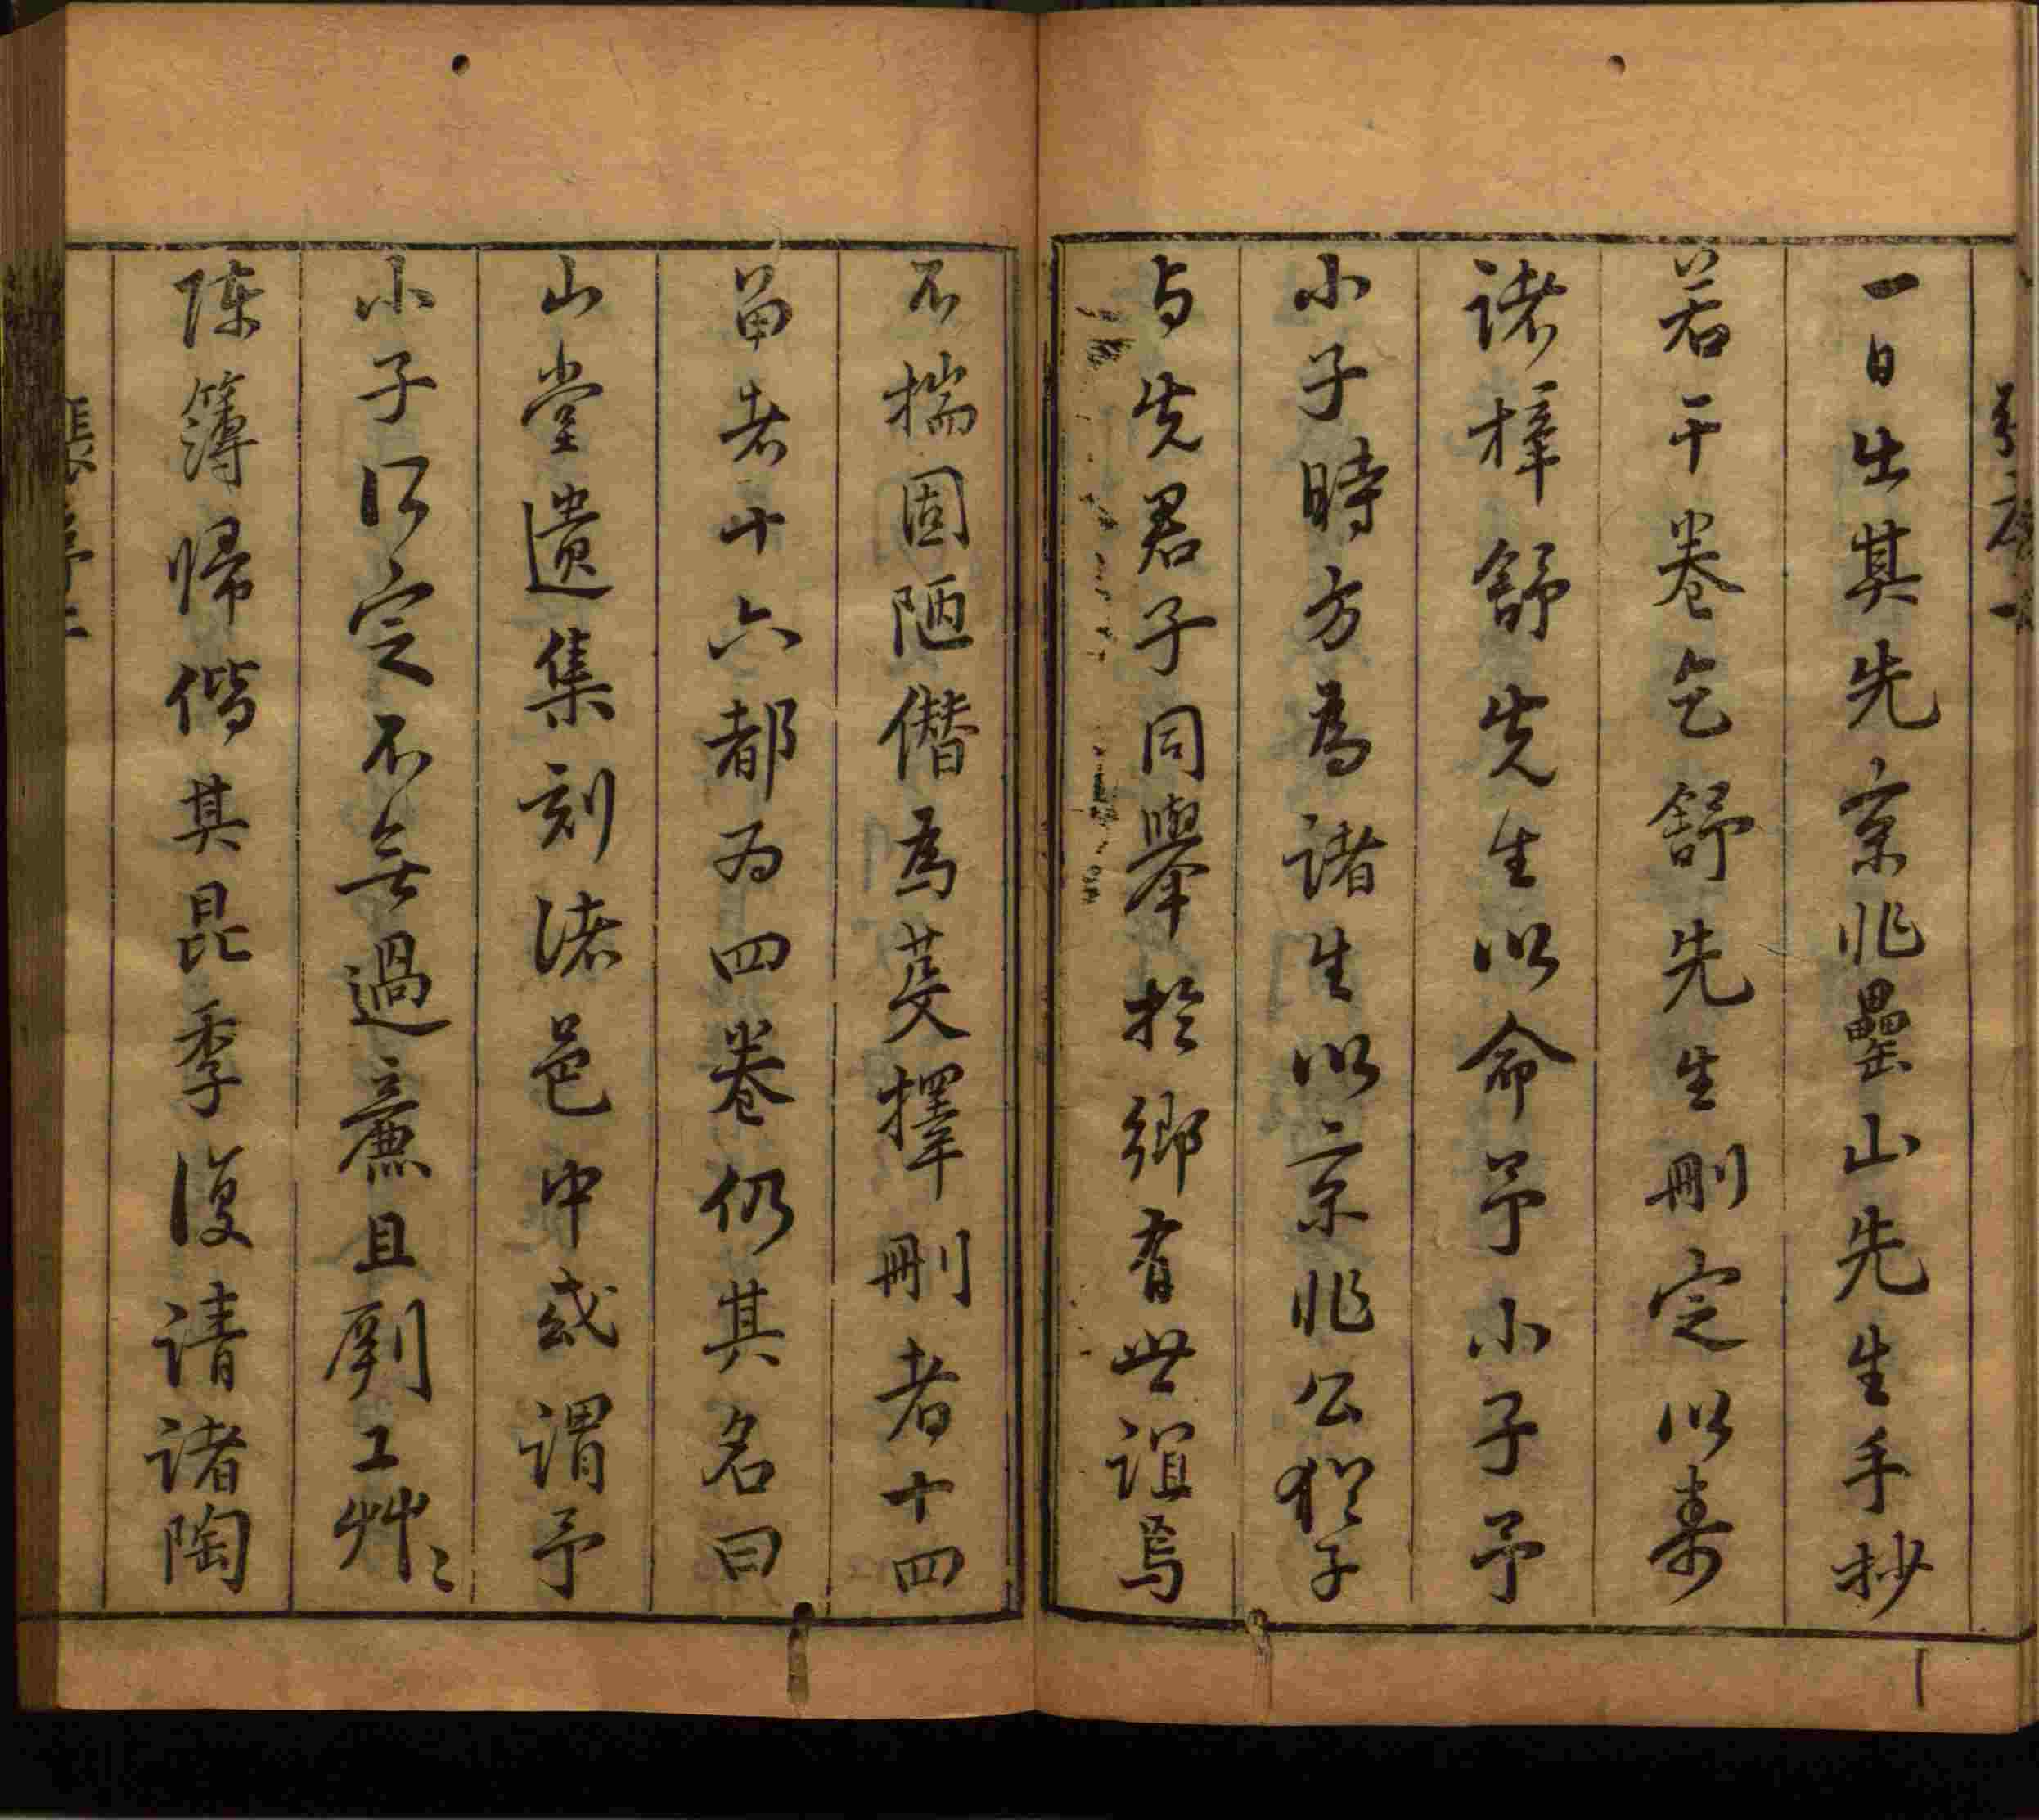 一日出其先京兆罍山先生手抄
若干卷乞舒先生刪定以壽
諸梓舒先生以命予小子予
小子時方為諸生以京兆公猶子
与先君子同舉於鄉有世誼焉
不揣固陋僭為芟擇刪者十四
畱者十六都为四卷仍其名曰
山堂遺集刻诸邑中或謂予
小子所定不無過廉且剞工艸〻
陈簿歸偕其昆季復请諸陶